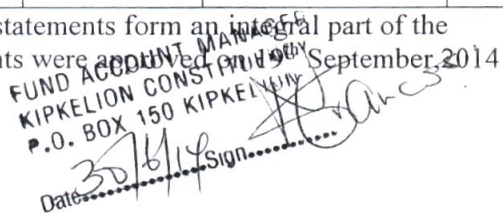 statements form an integral part of the
nts were approved on September, 2014
FUND ACCOUNT MANAGER
KIPKELION CONSTITUENCY
P.O. BOX 150 KIPKELION
Date 30/6/14 Sign